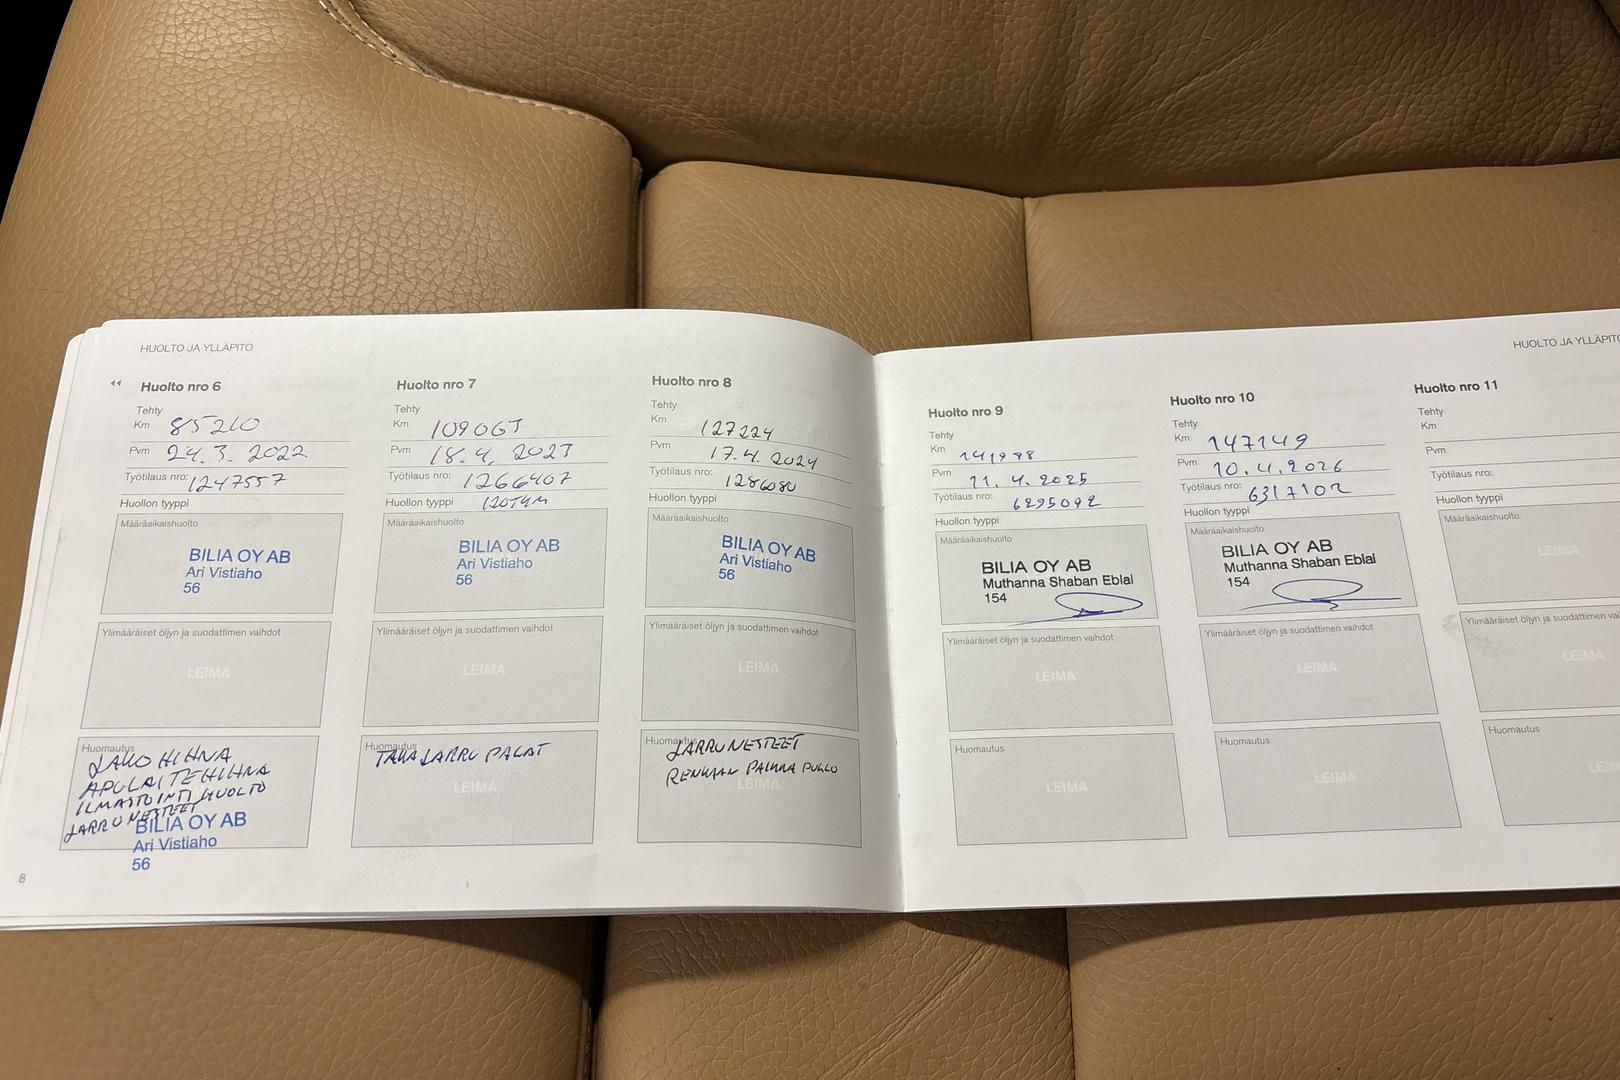 HUOLTO JA YLLÄPITO
Huolto nro 6
Tehty
Km 85210
Pvm 24.3.2022
Työtilaus nro: 1247557
Huollon tyyppi
Määräaikaishuolto
BILIA OY AB
Ari Vistiaho
56
Ylimääräiset öljyn ja suodattimen vaihdot
LEIMA
Huomautus
JAKOHIHNA
APULAITEHIHNA
ILMASTOINTI HUOLTO
JARRUNESTEET
BILIA OY AB
Ari Vistiaho
56
8
Huolto nro 7
Tehty
Km 109063
Pvm 18.4.2023
Työtilaus nro: 1266407
Huollon tyyppi
Määräaikaishuolto
BILIA OY AB
Ari Vistiaho
56
Ylimääräiset öljyn ja suodattimen vaihdot
LEIMA
Huomautus
TAKAJARRU PALAT
LEIMA
Huolto nro 8
Tehty
Km 127224
Pvm 17.4.2024
Työtilaus nro: 1286080
Huollon tyyppi
Määräaikaishuolto
BILIA OY AB
Ari Vistiaho
56
Ylimääräiset öljyn ja suodattimen vaihdot
LEIMA
Huomautus
JARRUNESTEET
RENKAAN PAIKKA PULLO
LEIMA
HUOLTO JA YLLÄPITO
Huolto nro 9
Tehty
Km
Pvm 11.4.2025
Työtilaus nro: 6295092
Huollon tyyppi
Määräaikaishuolto
BILIA OY AB
Muthanna Shaban Eblal
154
Ylimääräiset öljyn ja suodattimen vaihdot
LEIMA
Huomautus
LEIMA
Huolto nro 10
Tehty
Km 147149
Pvm 10.4.2026
Työtilaus nro: 6317102
Huollon tyyppi
Määräaikaishuolto
BILIA OY AB
Muthanna Shaban Eblal
154
Ylimääräiset öljyn ja suodattimen vaihdot
LEIMA
Huomautus
LEIMA
Huolto nro 11
Tehty
Km
Pvm
Työtilaus nro:
Huollon tyyppi
Määräaikaishuolto
LEIMA
Ylimääräiset öljyn ja suodattimen
LEIMA
Huomautus